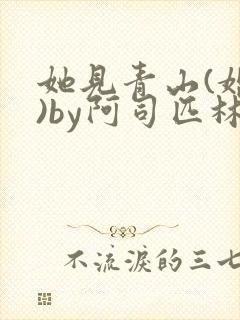 她见青山(婚
)by阿司匹林
不流淚的三七